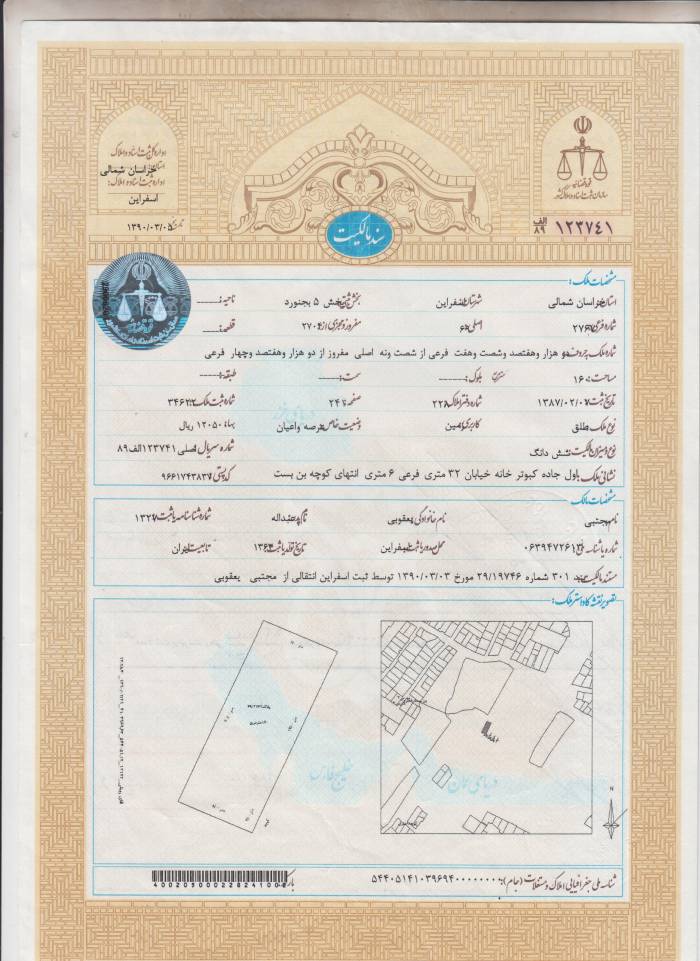 اداره کل ثبت اسناد و املاک
استان خراسان شمالی
اداره ثبت اسناد و املاک:
اسفراین
تاریخ: ۱۳۹۰/۰۳/۰۵
سند مالکیت
سازمان ثبت اسناد و املاک کشور
الف ۸۹ ۱۲۳۷۴۱
مشخصات ملک:
استان: خراسان شمالی شهرستان: اسفراین بخش ثبتی: بخش ۵ بجنورد ناحیه: -----
شماره فرعی: ۲۷۶۷ اصلی: ۶۹ مفروز و مجزی از: ۲۷۰۴ قطعه: -----
شماره ملک به حروف: دو هزار وهفتصد وشصت وهفت فرعی از شصت ونه اصلی مفروز از دو هزار وهفتصد وچهار فرعی
مساحت: ۱۶۰ مترمربع بلوک: ----- سمت: ----- طبقه: -----
تاریخ ثبت: ۱۳۸۷/۰۲/۰۷ شماره دفتر املاک: ۲۲۸ صفحه: ۲۴۱ شماره ثبت ملک:
نوع ملک: طلق کاربری: زمین وضعیت خاص: عرصه واعیان بهاء: ۱۲۰۵۰ ریال
نوع و میزان مالکیت: شش دانگ شماره سریال: اصلی ۱۲۳۷۴۱ الف ۸۹
نشانی ملک: باول جاده کبوتر خانه خیابان ۳۲ متری فرعی ۶ متری انتهای کوچه بن بست کد پستی: ۹۶۶۱۷۴۳۸۳۷
مشخصات مالک
نام: مجتبی نام خانوادگی: یعقوبی نام پدر: عبداله شماره شناسنامه یا ثبت:
شماره یا شناسه ملی: محل صدور یا ثبت: اسفراین تاریخ تولد یا ثبت: تابعیت: ایران
مستند مالکیت: سند ۳۰۱ شماره ۲۹/۱۹۷۴۶ مورخ ۱۳۹۰/۰۳/۰۳ توسط ثبت اسفراین انتقالی از مجتبی یعقوبی
تصویر نقشه کاداستر ملک:
N
خلیج فارس
دریای عمان
دریای خزر
شناسه ملی جغرافیایی املاک و مستغلات (جام):
بارکد